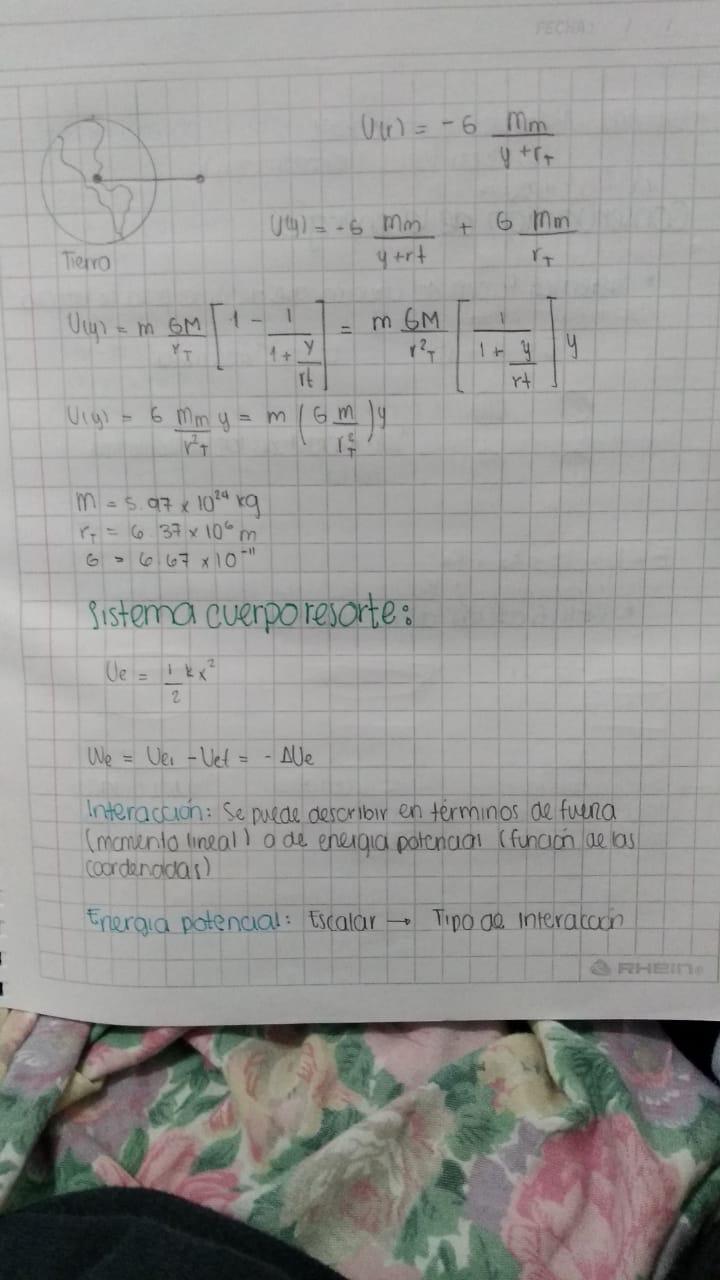 FECHA: / /
U(r) = -G Mm / (y + r_T)
Tierra
U(y) = -G Mm / (y + rt) + G Mm / r_T
U(y) = m GM / r_T [1 - 1 / (1 + y / rt)] = m GM / r²_T [1 / (1 + y / rt)] y
U(y) = G Mm / r²_T y = m (G m / r²_T) y
m = 5.97 x 10²⁴ kg
r_T = 6.37 x 10⁶ m
G = 6.67 x 10⁻¹¹
Sistema cuerpo resorte:
Ue = 1/2 k x²
We = Uei - Uef = - ΔUe
Interacción: Se puede describir en términos de fuerza
(momento lineal) o de energia potencial (función de las
coordenadas)
Energia potencial: Escalar → Tipo de interacción
RHEIN